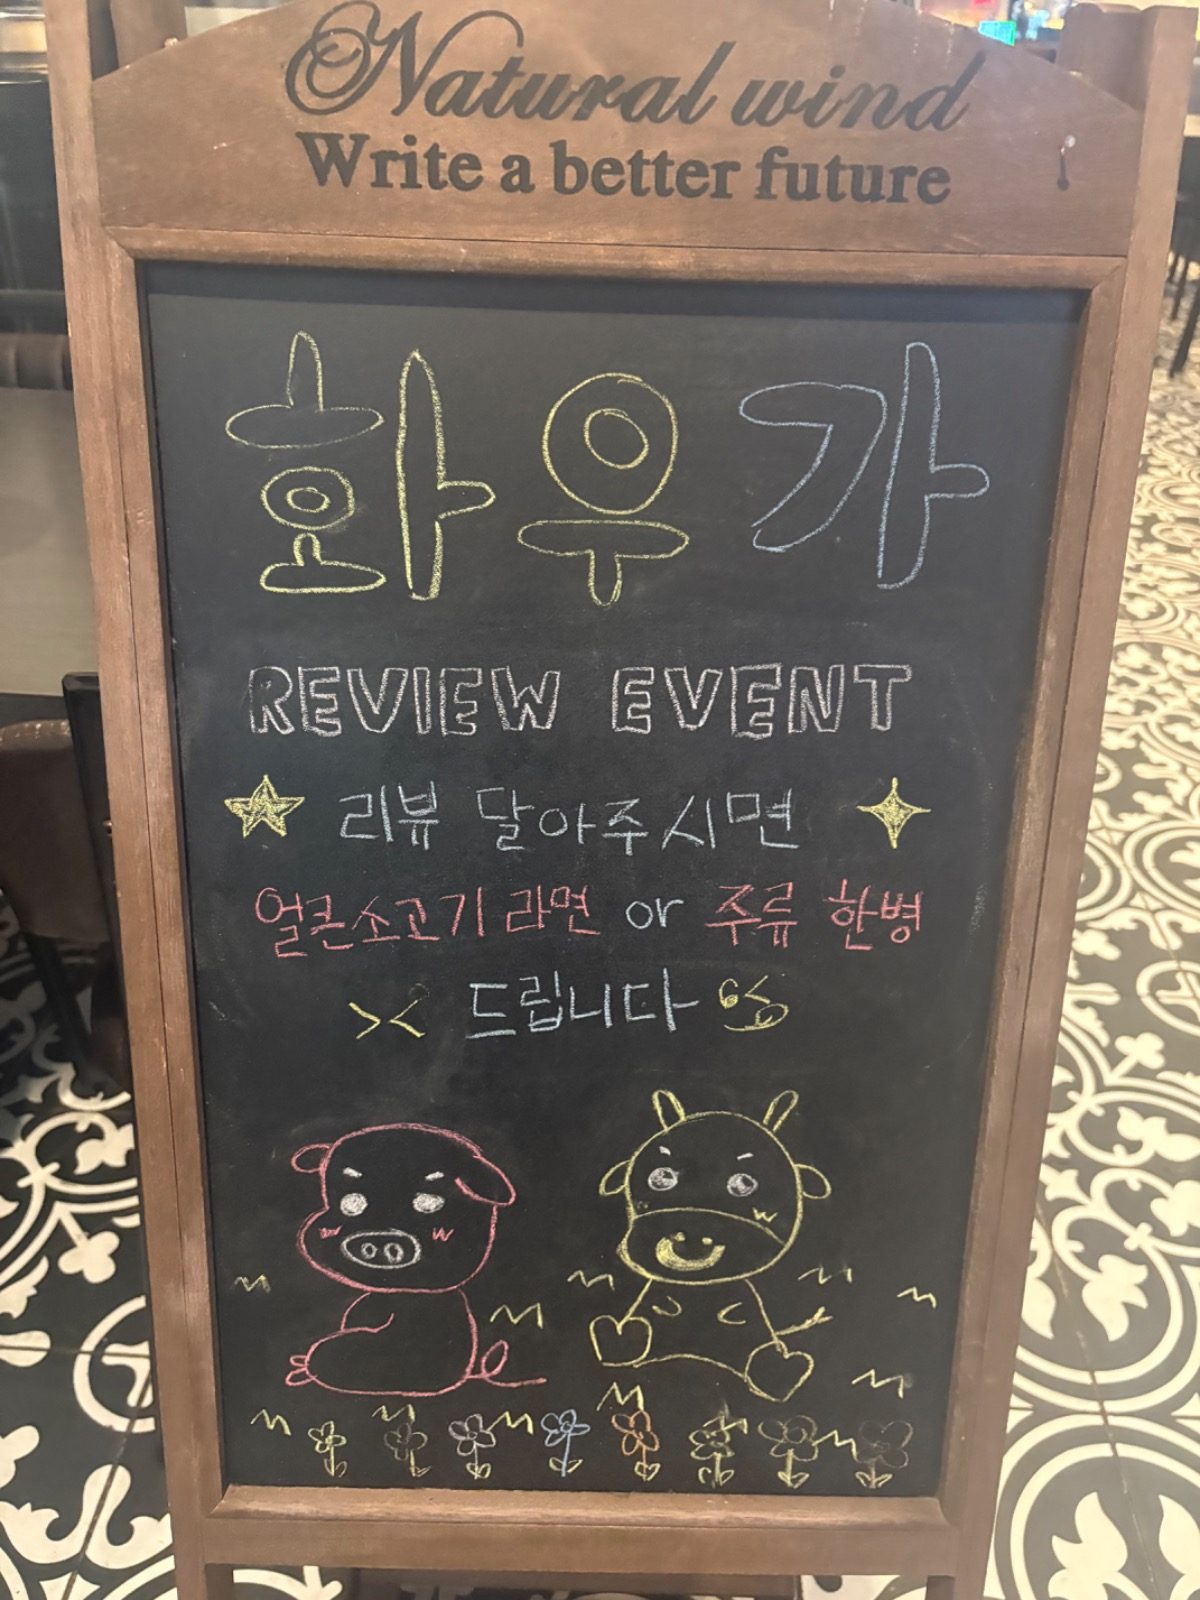 Natural wind
Write a better future
화우가
REVIEW EVENT
리뷰 달아주시면
얼큰소고기라면 or 주류 한병
드립니다